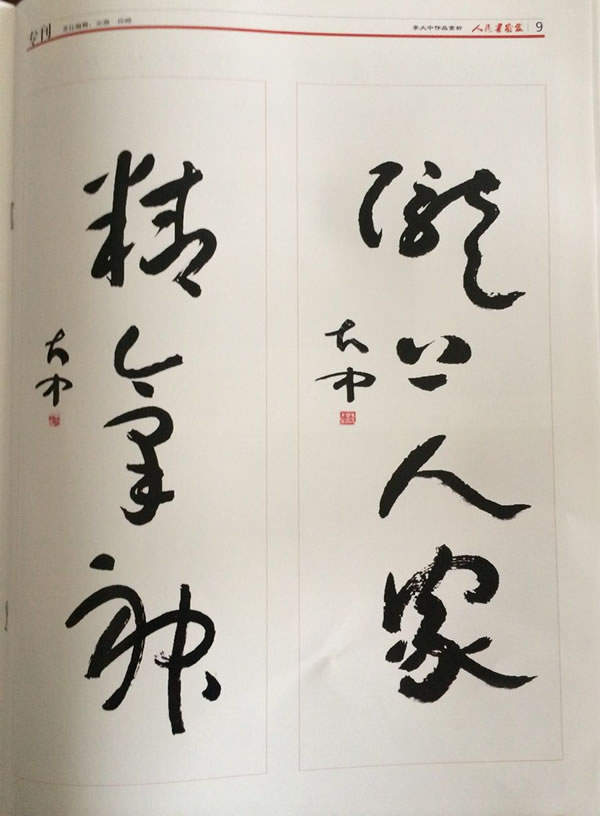 专刊
李大中作品赏析 人民书画家 9
陇上人家
大中
精氣神
大中